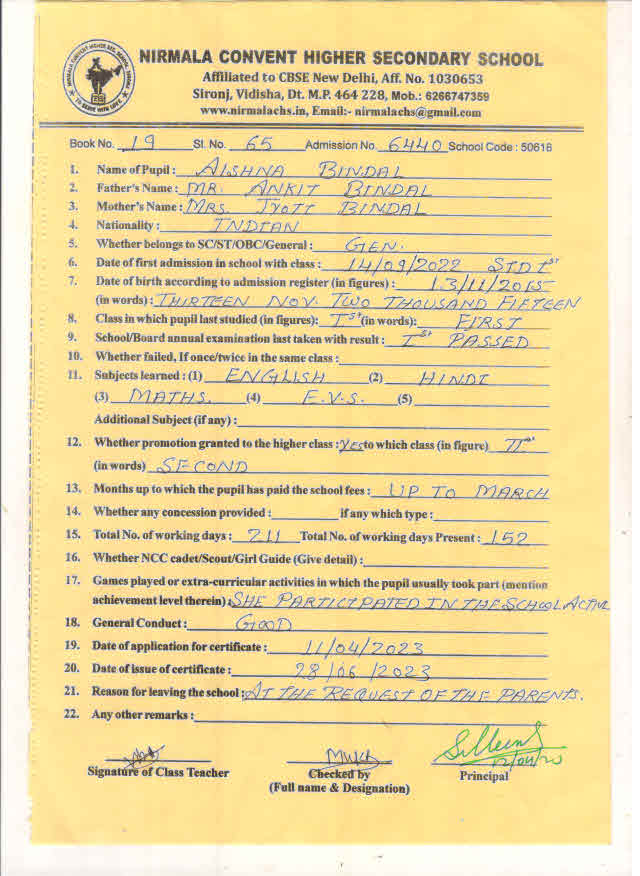 NIRMALA CONVENT HIGHER SECONDARY SCHOOL
Affiliated to CBSE New Delhi, Aff. No. 1030653
Sironj, Vidisha, Dt. M.P. 464 228, Mob.: 6266747359
www.nirmalachs.in, Email:- nirmalachs@gmail.com
Book No. 19 Sl. No. 65 Admission No. 6440 School Code : 50618
1. Name of Pupil : AISHNA BINDAL
2. Father's Name : MR. ANKIT BINDAL
3. Mother's Name : MRS. JYOTI BINDAL
4. Nationality : INDIAN
5. Whether belongs to SC/ST/OBC/General : GEN.
6. Date of first admission in school with class : 14/09/2022 STD Ist
7. Date of birth according to admission register (in figures) : 13/11/2015
(in words) : THIRTEEN NOV. TWO THOUSAND FIFTEEN
8. Class in which pupil last studied (in figures): Ist (in words): FIRST
9. School/Board annual examination last taken with result : Ist PASSED
10. Whether failed, If once/twice in the same class :
11. Subjects learned : (1) ENGLISH (2) HINDI
(3) MATHS. (4) E.V.S. (5)
Additional Subject (if any) :
12. Whether promotion granted to the higher class : Yes to which class (in figure) II
(in words) SECOND
13. Months up to which the pupil has paid the school fees : UP TO MARCH
14. Whether any concession provided : if any which type :
15. Total No. of working days : 211 Total No. of working days Present : 152
16. Whether NCC cadet/Scout/Girl Guide (Give detail) :
17. Games played or extra-curricular activities in which the pupil usually took part (mention
achievement level therein) : SHE PARTICIPATED IN THE SCHOOL ACTIVE
18. General Conduct : GOOD
19. Date of application for certificate : 11/04/2023
20. Date of issue of certificate : 28/06/2023
21. Reason for leaving the school : AT THE REQUEST OF THE PARENTS.
22. Any other remarks :
Signature of Class Teacher Checked by Principal
(Full name & Designation)